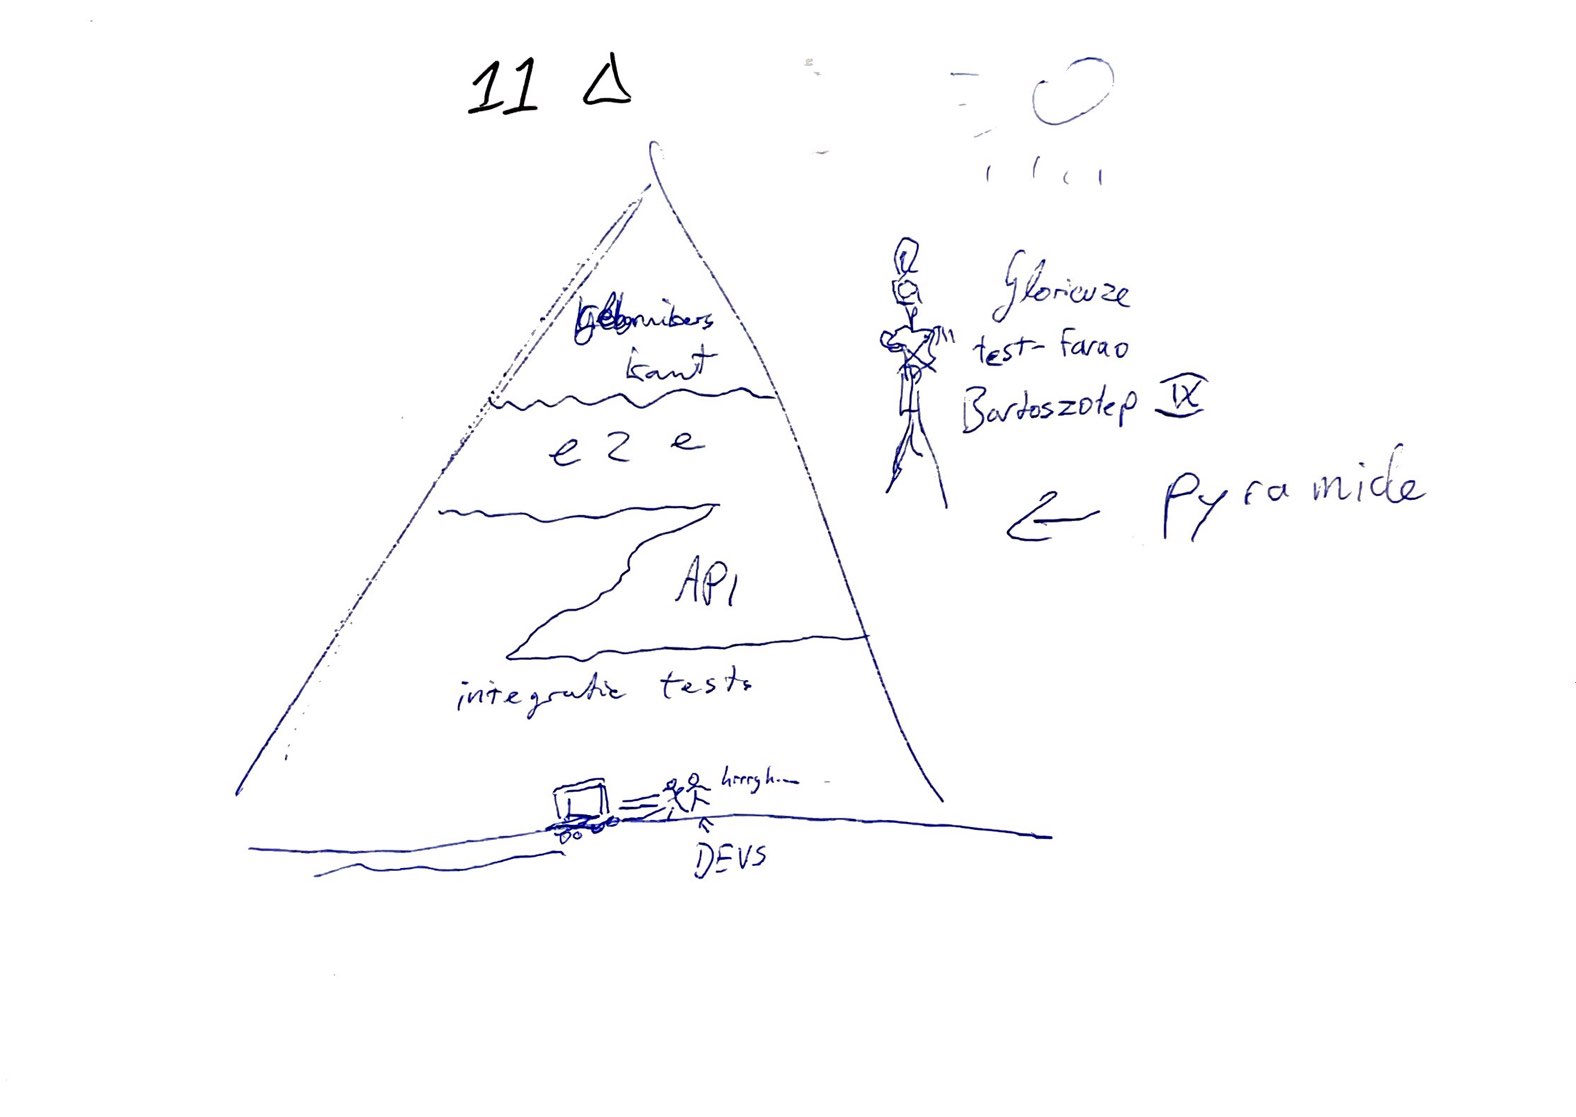 11 Δ
gebruikers
kant
e2e
API
integratie tests
hrrrgh...
DEVS
Glorieuze
test-farao
Bartoszotep IX
Pyramide